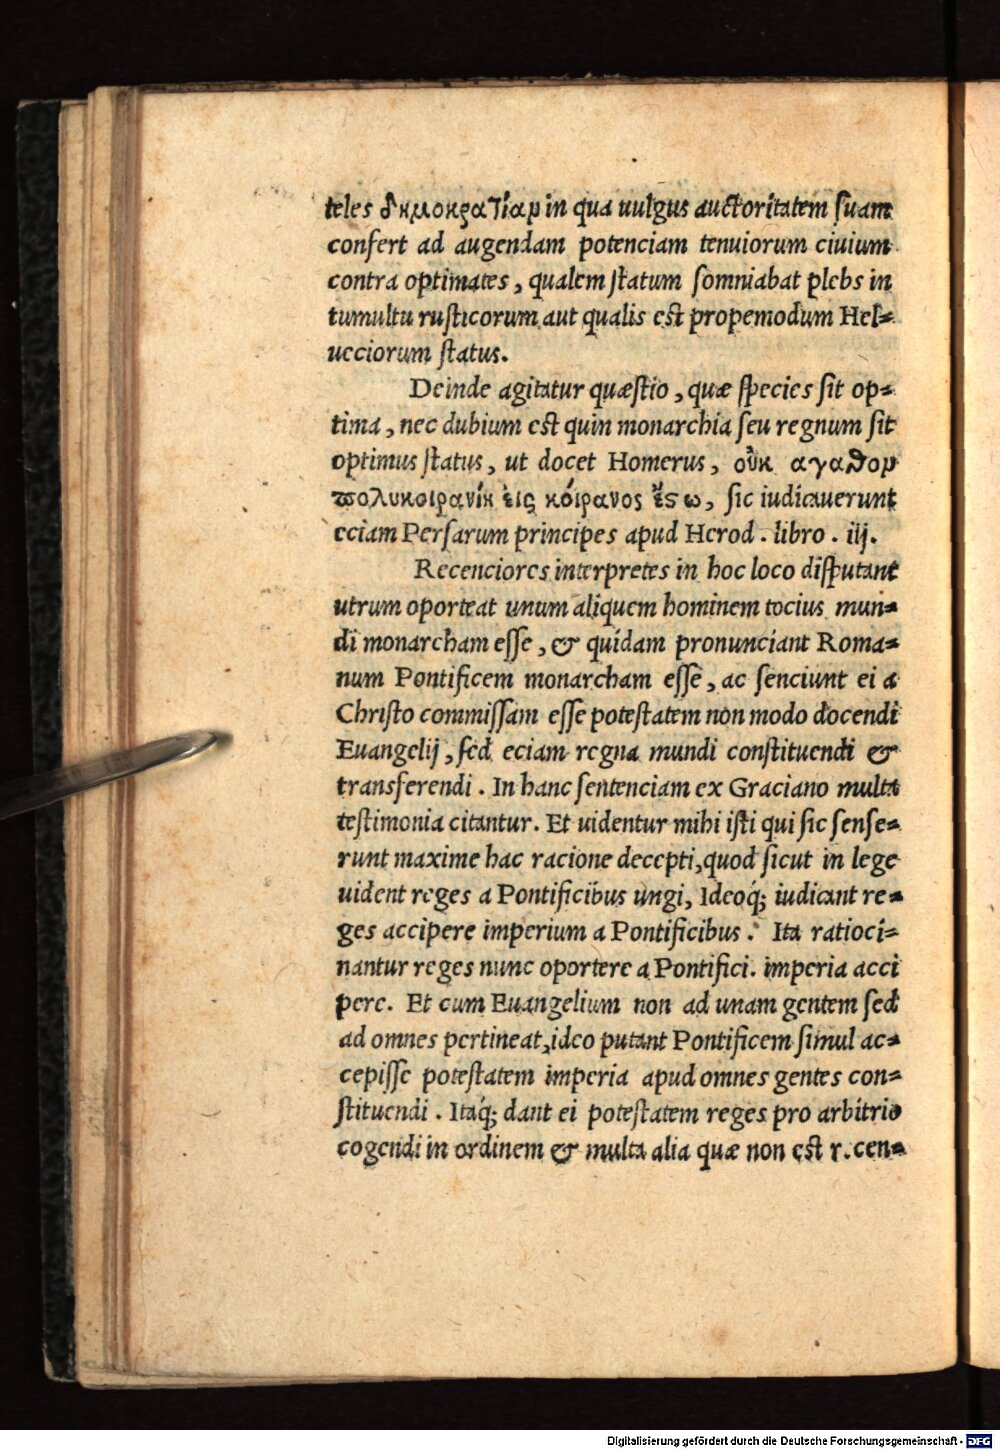 teles δημοκρατίαν in qua uulgus auctoritatem suam
confert ad augendam potenciam tenuiorum ciuium
contra optimates, qualem statum somniabat plebs in
tumultu rusticorum aut qualis est propemodum Hel=
uecciorum status.
Deinde agitatur quæstio, quæ species sit op=
tima, nec dubium est quin monarchia seu regnum sit
optimus status, ut docet Homerus, οὐκ αγαθον
πολυκοιρανίη εἱς κοίρανος ἔστω, sic iudicauerunt
eciam Persarum principes apud Herod. libro. iij.
Recenciores interpretes in hoc loco disputant
utrum oporteat unum aliquem hominem tocius mun=
di monarcham esse, & quidam pronunciant Roma=
num Pontificem monarcham esse, ac senciunt ei a
Christo commissam esse potestatem non modo docendi
Euangelij, sed eciam regna mundi constituendi &
transferendi. In hanc sentenciam ex Graciano multa
testimonia citantur. Et uidentur mihi isti qui sic sense=
runt maxime hac racione decepti, quod sicut in lege
uident reges a Pontificibus ungi, Ideoq; iudicant re=
ges accipere imperium a Pontificibus. Ita ratioci=
nantur reges nunc oportere a Pontifici. imperia acci
pere. Et cum Euangelium non ad unam gentem sed
ad omnes pertineat, ideo putant Pontificem simul ac=
cepisse potestatem imperia apud omnes gentes con=
stituendi. Itaq; dant ei potestatem reges pro arbitrio
cogendi in ordinem & multa alia quæ non est r.cen=
Digitalisierung gefördert durch die Deutsche Forschungsgemeinschaft - DFG